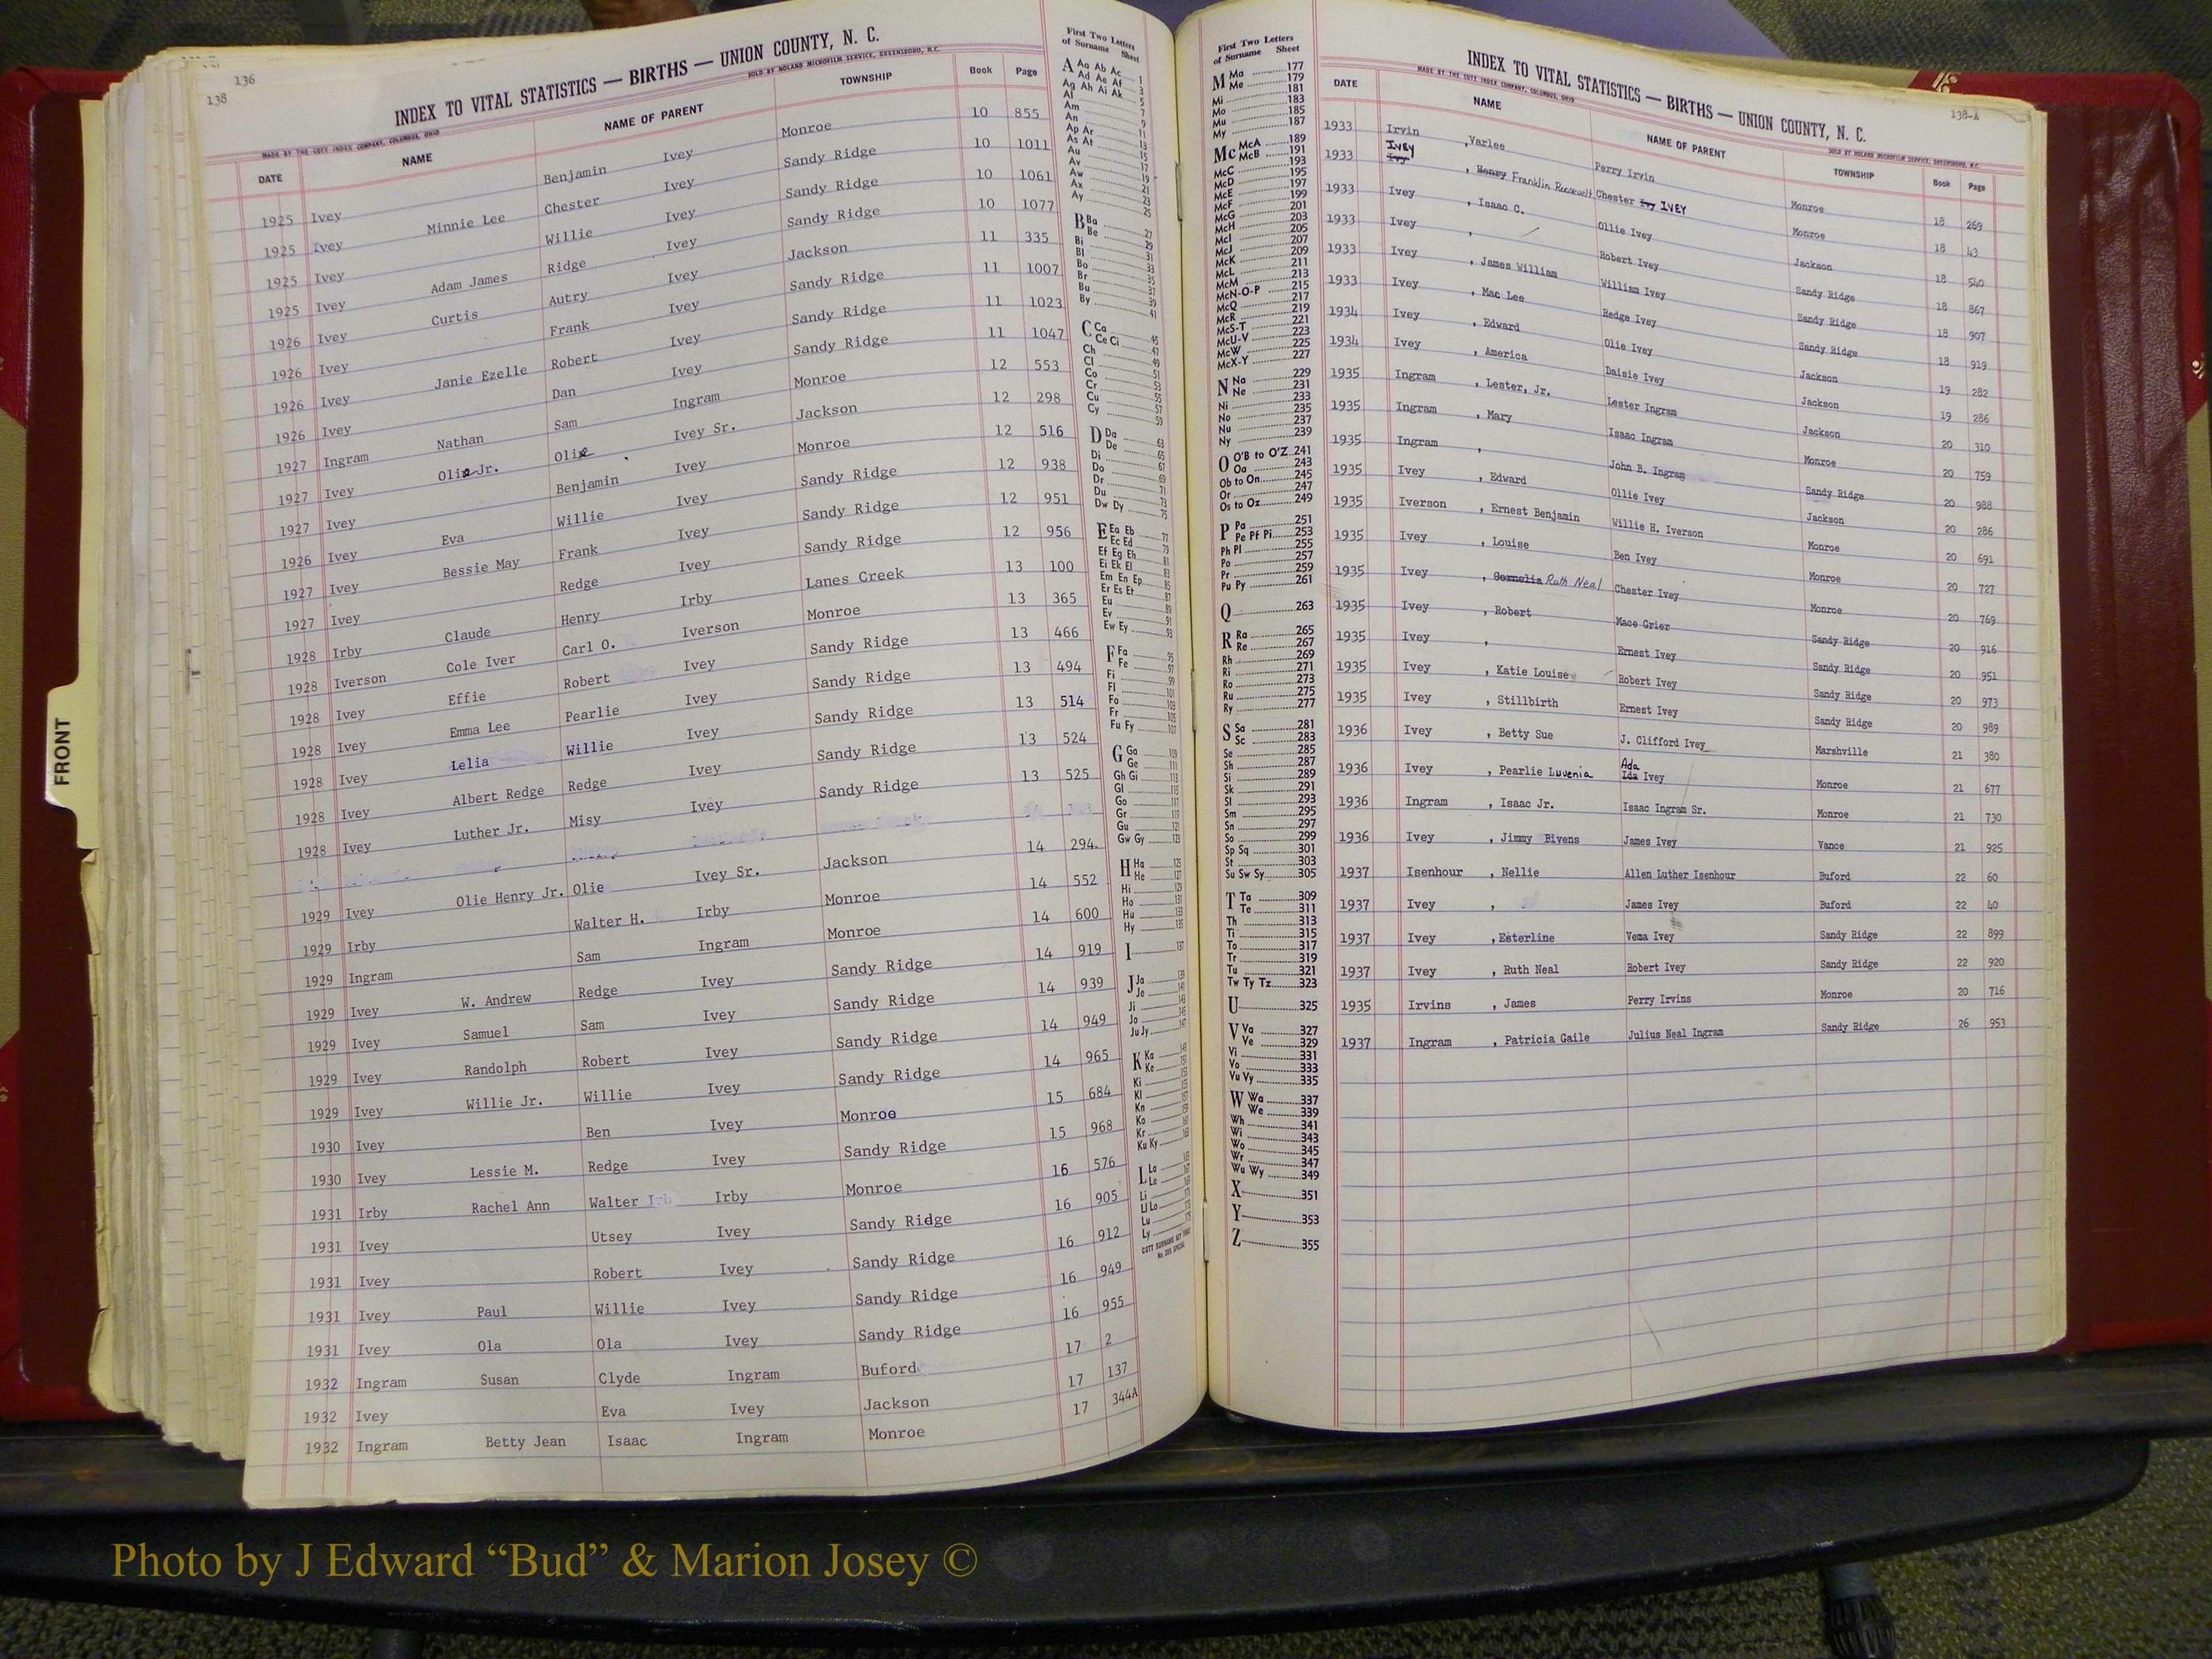 136
138
INDEX TO VITAL STATISTICS — BIRTHS — UNION COUNTY, N. C.
MADE BY THE COTT INDEX COMPANY, COLUMBUS, OHIO SOLD BY NOLAND MICROFILM SERVICE, GREENSBORO, N.C.
DATE NAME NAME OF PARENT TOWNSHIP Book Page
1925 Ivey Benjamin Ivey Monroe 10 855
1925 Ivey Minnie Lee Chester Ivey Sandy Ridge 10 1011
1925 Ivey Willie Ivey Sandy Ridge 10 1061
1925 Ivey Adam James Ridge Ivey Sandy Ridge 10 1077
1926 Ivey Curtis Autry Ivey Jackson 11 335
1926 Ivey Frank Ivey Sandy Ridge 11 1007
1926 Ivey Janie Ezelle Robert Ivey Sandy Ridge 11 1023
1926 Ivey Dan Ivey Sandy Ridge 11 1047
1927 Ingram Nathan Sam Ingram Monroe 12 553
1927 Ivey Olie Jr. Olie Ivey Sr. Jackson 12 298
1927 Ivey Benjamin Ivey Monroe 12 516
1926 Ivey Eva Willie Ivey Sandy Ridge 12 938
1927 Ivey Bessie May Frank Ivey Sandy Ridge 12 951
1927 Ivey Redge Ivey Sandy Ridge 12 956
1928 Irby Claude Henry Irby Lanes Creek 13 100
1928 Iverson Cole Iver Carl O. Iverson Monroe 13 365
1928 Ivey Effie Robert Ivey Sandy Ridge 13 466
1928 Ivey Emma Lee Pearlie Ivey Sandy Ridge 13 494
1928 Ivey Lelia Willie Ivey Sandy Ridge 13 514
1928 Ivey Albert Redge Redge Ivey Sandy Ridge 13 524
1928 Ivey Luther Jr. Misy Ivey Sandy Ridge 13 525
1929 Ivey Olie Henry Jr. Olie Ivey Sr. Jackson 14 294.
1929 Irby Walter H. Irby Monroe 14 552
1929 Ingram Sam Ingram Monroe 14 600
1929 Ivey W. Andrew Redge Ivey Sandy Ridge 14 919
1929 Ivey Samuel Sam Ivey Sandy Ridge 14 939
1929 Ivey Randolph Robert Ivey Sandy Ridge 14 949
1929 Ivey Willie Jr. Willie Ivey Sandy Ridge 14 965
1930 Ivey Ben Ivey Monroe 15 684
1930 Ivey Lessie M. Redge Ivey Sandy Ridge 15 968
1931 Irby Rachel Ann Walter Irby Monroe 16 576
1931 Ivey Utsey Ivey Sandy Ridge 16 905
1931 Ivey Robert Ivey Sandy Ridge 16 912
1931 Ivey Paul Willie Ivey Sandy Ridge 16 949
1931 Ivey Ola Ola Ivey Sandy Ridge 16 955
1932 Ingram Susan Clyde Ingram Buford 17 2
1932 Ivey Eva Ivey Jackson 17 137
1932 Ingram Betty Jean Isaac Ingram Monroe 17 344A
First Two Letters
of Surname Sheet
A Aa Ab Ac 1
Ad Ae Af 3
Ag Ah Ai Ak 5
Al 7
Am 9
An 11
Ap Ar 13
As At 15
Au 17
Av 19
Aw 21
Ax 23
Ay 25
B Ba 27
Be 29
Bi 31
Bl 33
Bo 35
Br 37
Bu 39
By 41
C Ca 45
Ce Ci 47
Ch 49
Cl 51
Co 53
Cr 55
Cu 57
Cy 59
D Da 63
De 65
Di 67
Do 69
Dr 71
Du 73
Dw Dy 75
E Ea Eb 77
Ec Ed 79
Ef Eg Eh 81
Ei Ek El 83
Em En Ep 85
Er Es Et 87
Eu 89
Ev 91
Ew Ey 93
F Fa 95
Fe 97
Fi 99
Fl 101
Fo 103
Fr 105
Fu Fy 107
G Ga 109
Ge 111
Gh Gi 113
Gl 115
Go 117
Gr 119
Gu 121
Gw Gy 123
H Ha 125
He 127
Hi 129
Ho 131
Hu 133
Hy 135
I 137
J Ja 139
Je 141
Ji 143
Jo 145
Ju Jy 147
K Ka
Ke
Ki
Kl
Kn
Ko
Kr
Ku Ky
L La
Le
Li
Ll Lo
Lu
Ly
First Two Letters
of Surname Sheet
M Ma 177
Me 179
181
Mi 183
Mo 185
Mu 187
My
Mc McA 189
McB 191
McC 193
McD 195
McE 197
McF 199
McG 201
McH 203
McI 205
McJ 207
McK 209
McL 211
McM 213
McN-O-P 215
McQ 217
McR 219
McS-T 221
McU-V 223
McW 225
McX-Y 227
N Na 229
Ne 231
233
Ni 235
No 237
Nu 239
Ny
O O'B to O'Z 241
Oa 243
Ob to On 245
Or 247
Os to Oz 249
P Pa 251
Pe Pf Pi 253
Ph Pl 255
Po 257
Pr 259
Pu Py 261
Q 263
R Ra 265
Re 267
Rh 269
Ri 271
Ro 273
Ru 275
Ry 277
S Sa 281
Sc 283
Se 285
Sh 287
Si 289
Sk 291
Sl 293
Sm 295
Sn 297
So 299
Sp Sq 301
St 303
Su Sw Sy 305
T Ta 309
Te 311
Th 313
Ti 315
To 317
Tr 319
Tu 321
Tw Ty Tz 323
U 325
V Va 327
Ve 329
Vi 331
Vo 333
Vu Vy 335
W Wa 337
We 339
Wh 341
Wi 343
Wo 345
Wr 347
Wu Wy 349
X 351
Y 353
Z 355
138-A
INDEX TO VITAL STATISTICS — BIRTHS — UNION COUNTY, N. C.
MADE BY THE COTT INDEX COMPANY, COLUMBUS, OHIO SOLD BY NOLAND MICROFILM SERVICE, GREENSBORO, N.C.
DATE NAME NAME OF PARENT TOWNSHIP Book Page
1933 Irvin , Varlee Perry Irvin Monroe 18 269
1933 IVEY Ivy , Henry Franklin Roosevelt Chester Ivy IVEY Monroe 18 43
1933 Ivey , Isaac C. Ollie Ivey Jackson 18 540
1933 Ivey , Robert Ivey Sandy Ridge 18 867
1933 Ivey , James William William Ivey Sandy Ridge 18 907
1933 Ivey , Mac Lee Redge Ivey Sandy Ridge 18 919
1934 Ivey , Edward Olie Ivey Jackson 19 282
1934 Ivey , America Daisie Ivey Jackson 19 286
1935 Ingram , Lester, Jr. Lester Ingram Jackson 20 310
1935 Ingram , Mary Isaac Ingram Monroe 20 759
1935 Ingram , John B. Ingram Sandy Ridge 20 988
1935 Ivey , Edward Ollie Ivey Jackson 20 286
1935 Iverson , Ernest Benjamin Willie H. Iverson Monroe 20 691
1935 Ivey , Louise Ben Ivey Monroe 20 727
1935 Ivey , Cornelia Ruth Neal Chester Ivey Monroe 20 769
1935 Ivey , Robert Mace Grier Sandy Ridge 20 916
1935 Ivey , Ernest Ivey Sandy Ridge 20 951
1935 Ivey , Katie Louise Robert Ivey Sandy Ridge 20 973
1935 Ivey , Stillbirth Ernest Ivey Sandy Ridge 20 989
1936 Ivey , Betty Sue J. Clifford Ivey Marshville 21 380
1936 Ivey , Pearlie Luvenia Ada Ida Ivey Monroe 21 677
1936 Ingram , Isaac Jr. Isaac Ingram Sr. Monroe 21 730
1936 Ivey , Jimmy Bivens James Ivey Vance 21 925
1937 Isenhour , Nellie Allen Luther Isenhour Buford 22 60
1937 Ivey , James Ivey Buford 22 40
1937 Ivey , Esterline Vema Ivey Sandy Ridge 22 899
1937 Ivey , Ruth Neal Robert Ivey Sandy Ridge 22 920
1935 Irvins , James Perry Irvins Monroe 20 716
1937 Ingram , Patricia Gaile Julius Neal Ingram Sandy Ridge 26 953
FRONT
Photo by J Edward “Bud” & Marion Josey ©